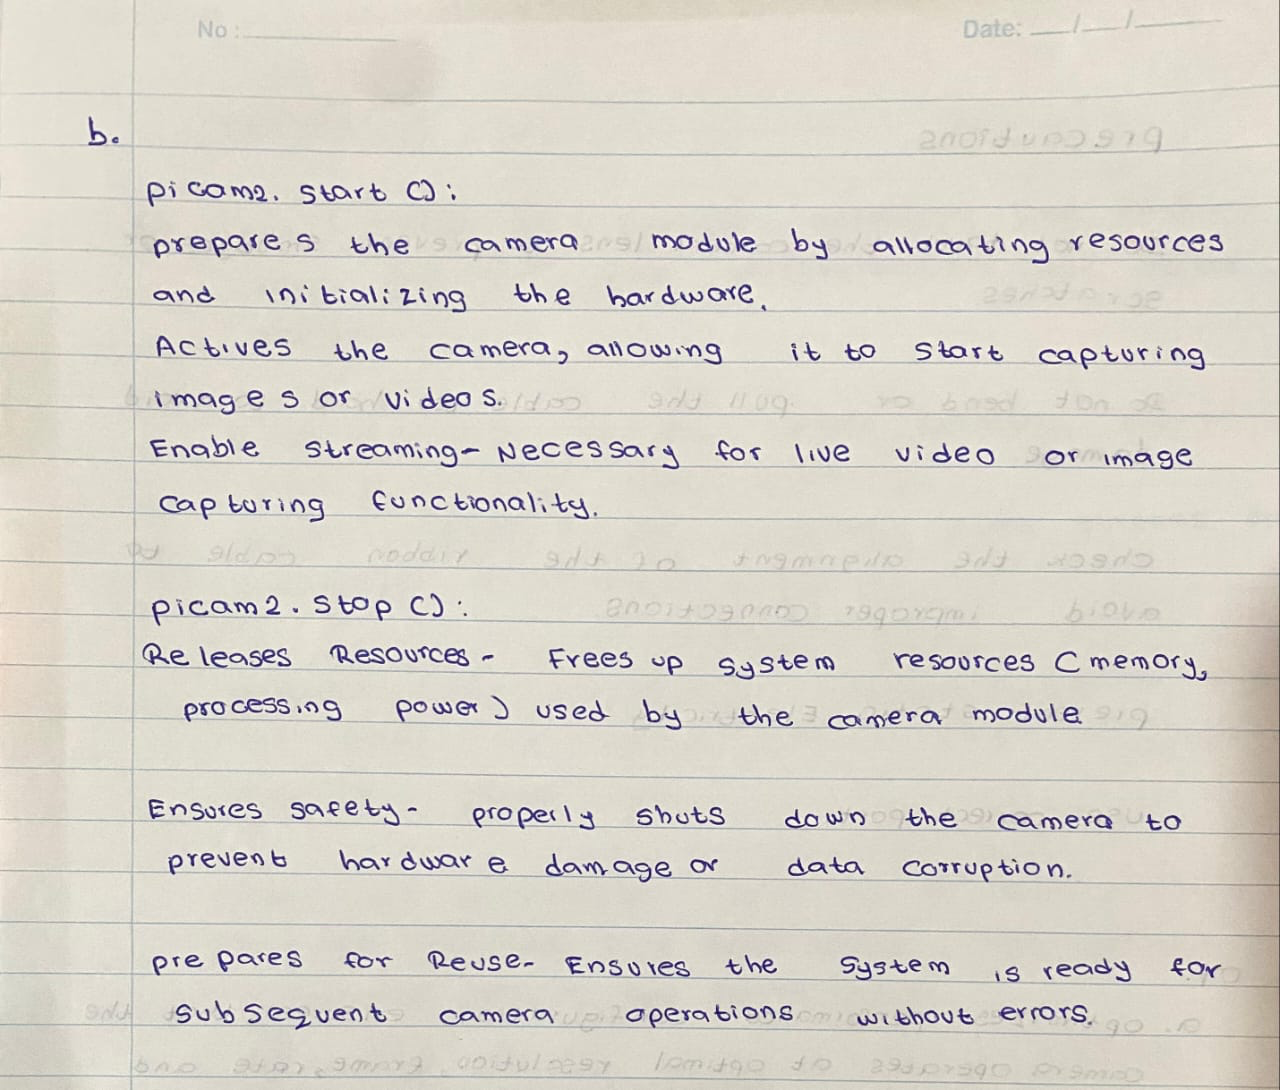 No :
Date: __/__/__
b.
picam2. start ():
prepares the camera module by allocating resources
and initializing the hardware.
Actives the camera, allowing it to start capturing
images or videos.
Enable streaming- Necessary for live video or image
capturing functionality.
picam2. stop ():
Releases Resources - Frees up system resources (memory,
processing power) used by the camera module
Ensures safety- properly shuts down the camera to
prevent hardware damage or data corruption.
prepares for Reuse- Ensures the system is ready for
subsequent camera operations without errors.